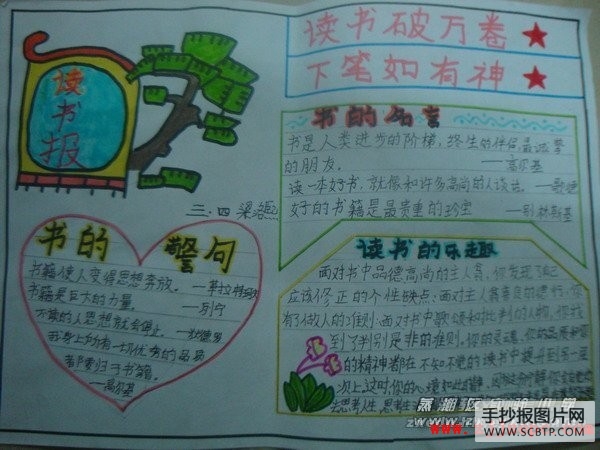 读书报
读书破万卷
下笔如有神
三.四 梁
书的名言
书是人类进步的阶梯，终生的伴侣，最诚挚
的朋友。 ——高尔基
读一本好书，就像和许多高尚的人谈话。——歌德
好的书籍是最贵重的珍宝 ——别林斯基
书的警句
书籍使人变得思想奔放。——革拉特珂夫
书籍是巨大的力量。 ——列宁
不读书的人思想就会停止。——狄德罗
我身上所有一切优秀的品质
都要归于书籍。
——高尔基
读书的乐趣
面对书中品德高尚的主人翁，你发现了自己
应该修正的个性缺点；面对主人翁
有了做人的准则；面对书中歌颂和批判的人物，你找
到了判别是非的准则。你的灵魂、你的品质和你
的精神都在不知不觉的读书中提升到另一层
次上
去思考人生，思考生
蒸湘区
手抄报图片网
WWW.SCBTP.COM